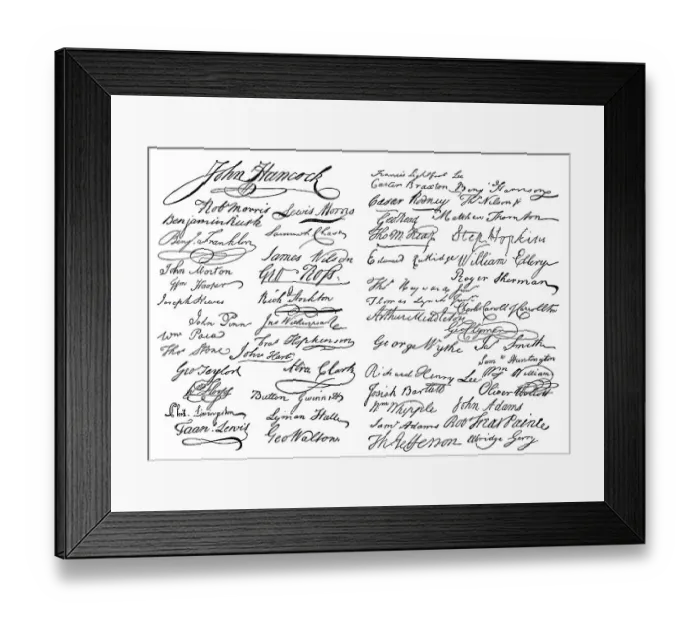 John Hancock
Robt Morris Lewis Morris
Benjamin Rush
Benj. Franklin Samuel Chase
James Wilson
John Morton Geo. Ross.
Wm Hooper
Joseph Hewes Richd Stockton
John Penn
Wm Paca Fras Hopkinson
Thos Stone John Hart
Geo Taylor Abra Clark
Button Gwinnett
Phil. Livingston Lyman Hall
Fran. Lewis Geo Walton
Francis Lightfoot Lee
Carter Braxton Benj Harrison
Cæsar Rodney Thos Nelson jr
Geo Read Matthew Thornton
Tho M:Kean Step. Hopkins
Edward Rutledge William Ellery
Roger Sherman
Thos Heyward Junr
Thomas Lynch Junr Charles Carroll of Carrollton
Arthur Middleton
Geo Clymer
George Wythe Jas Smith
Saml Huntington
Richard Henry Lee Wm Williams
Josiah Bartlett Oliver Wolcott
Wm Whipple John Adams
Saml Adams Rob Treat Paine
Th Jefferson Elbridge Gerry